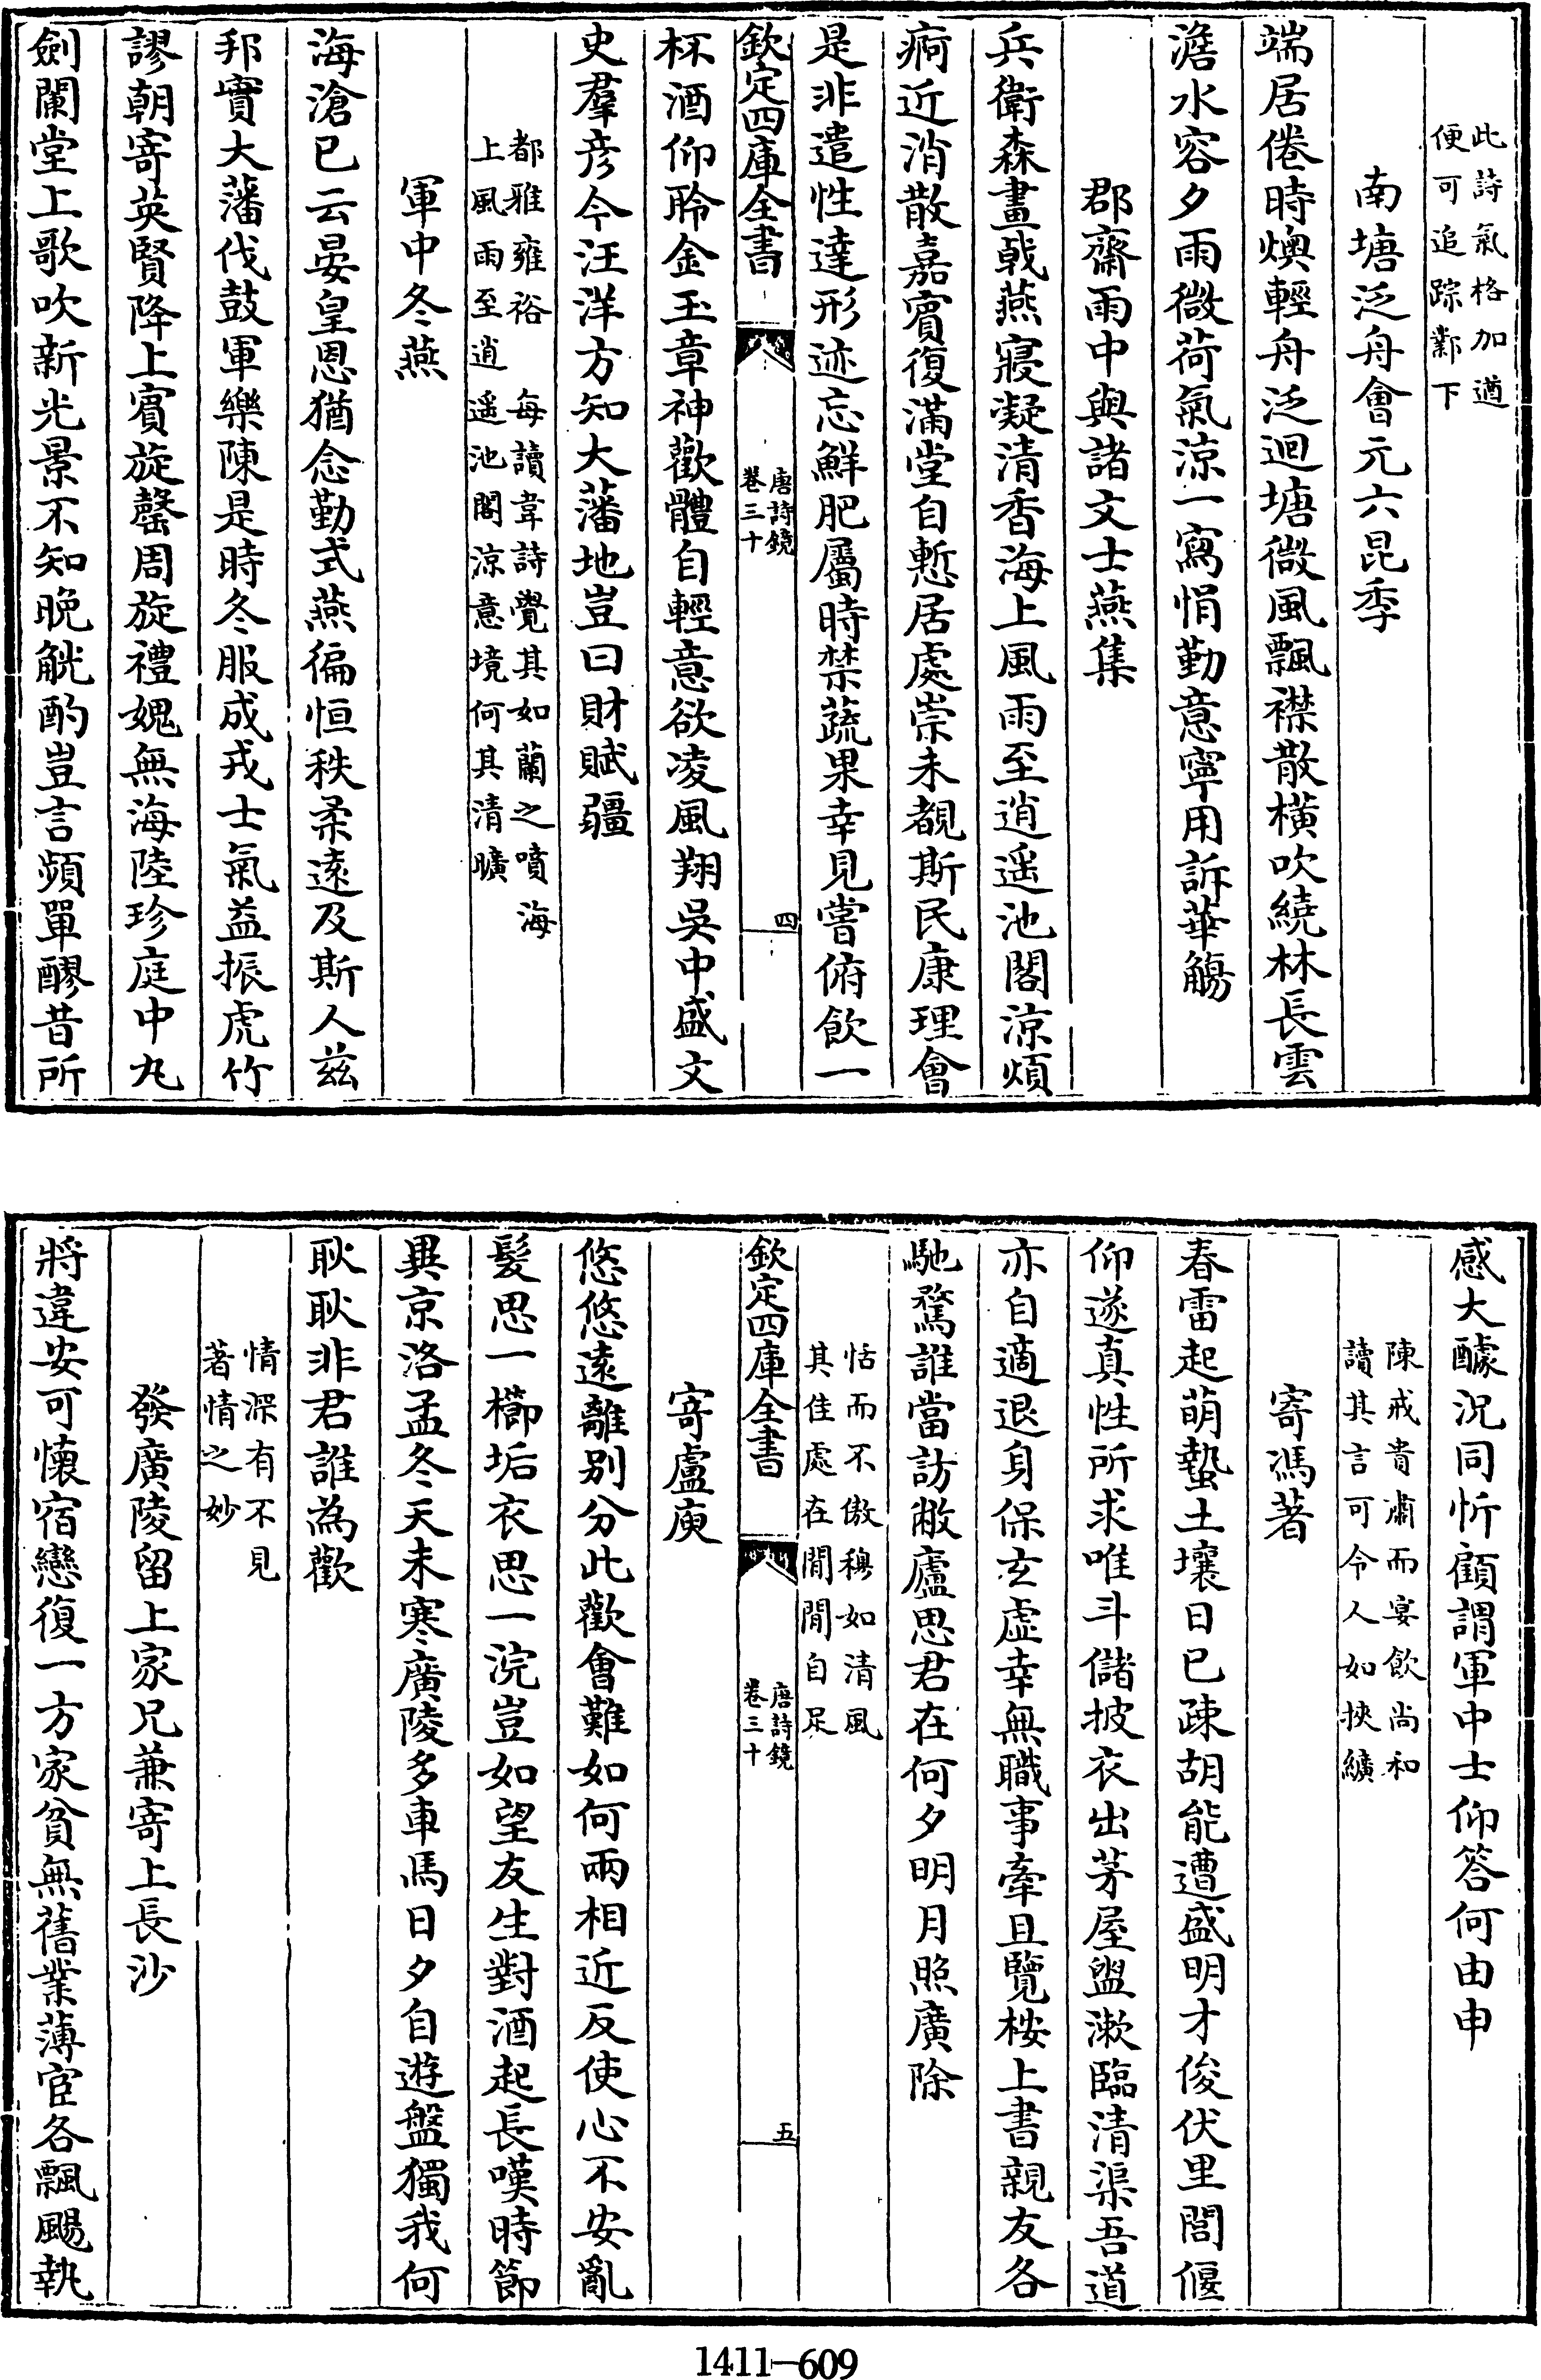 此詩氣格加遒
便可追踪鄴下
南塘泛舟會元六昆季
端居倦時燠輕舟泛迴塘微風飄襟散橫吹繞林長雲
澹水容夕雨微荷氣涼一寫悁勤意寧用訴華觴
郡齋雨中與諸文士燕集
兵衛森畫戟燕寢凝清香海上風雨至逍遥池閣涼煩
痾近消散嘉賓復滿堂自慙居處崇未覩斯民康理會
是非遣性達形迹忘鮮肥屬時禁蔬果幸見嘗俯飲一
欽定四庫全書
唐詩鏡
卷三十
四
杯酒仰聆金玉章神歡體自輕意欲凌風翔吳中盛文
史羣彦今汪洋方知大藩地豈曰財賦疆
都雅雍裕 每讀韋詩覺其如蘭之噴海
上風雨至逍遥池閣涼意境何其清曠
軍中冬燕
海滄已云晏皇恩猶念勤式燕徧恒秩柔遠及斯人兹
邦實大藩伐鼓軍樂陳是時冬服成戎士氣益振虎竹
謬朝寄英賢降上賓旋罄周旋禮媿無海陸珍庭中丸
劍闌堂上歌吹新光景不知晚觥酌豈言頻單醪昔所
感大醵況同忻顧謂軍中士仰答何由申
陳戒貴肅而宴飲尚和
讀其言可令人如挾纊
寄馮著
春雷起萌蟄土壤日已疎胡能遭盛明才俊伏里閭偃
仰遂真性所求唯斗儲披衣出茅屋盥漱臨清渠吾道
亦自適退身保玄虛幸無職事牽且覽桉上書親友各
馳騖誰當訪敝廬思君在何夕明月照廣除
恬而不傲穆如清風
其佳處在閒閒自足
欽定四庫全書
唐詩鏡
卷三十
五
寄盧庾
悠悠遠離别分此歡會難如何兩相近反使心不安亂
髮思一櫛垢衣思一浣豈如望友生對酒起長嘆時節
異京洛孟冬天未寒廣陵多車馬日夕自遊盤獨我何
耿耿非君誰為歡
情深有不見
著情之妙
發廣陵留上家兄兼寄上長沙
將違安可懷宿戀復一方家貧無舊業薄宦各飄颺執
1411—609